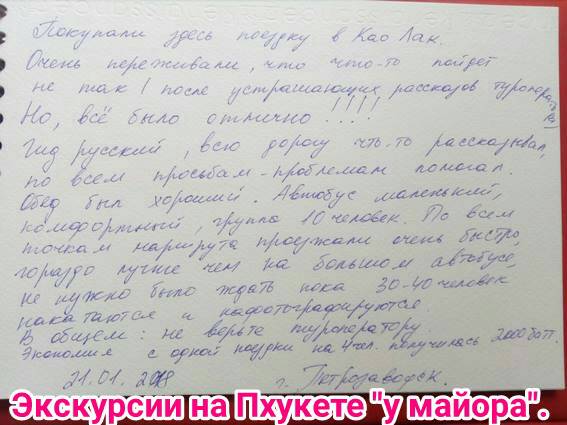 Покупали здесь поездку в Као Лак.
Очень переживали, что что-то пойдет
не так (после устрашающих рассказов туроператора)
Но, всё было отлично!!!!
Гид русский, всю дорогу что-то рассказывал,
по всем просьбам-проблемам помогал.
Обед был хороший. Автобус маленький,
комфортный, группа 10 человек. По всем
точкам маршрута проезжали очень быстро,
гораздо лучше чем на большом автобусе,
не нужно было ждать пока 30-40 человек
накатаются и нафотографируются.
В общем: не верьте туроператору.
Экономия с одной поездки на 4 чел. получилась 2000 батт.
21.01.2018 г. Петрозаводск.
Экскурсии на Пхукете "у майора".